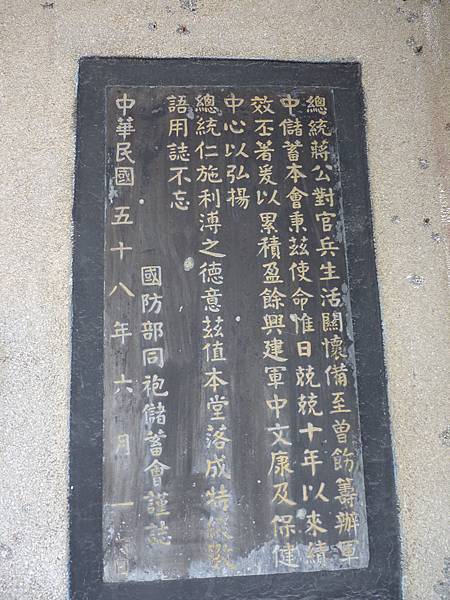 總統蔣公對官兵生活關懷備至曾飭籌辦軍
中儲蓄本會秉茲使命惟日兢兢十年以來績
效丕著爰以累積盈餘興建軍中文康及保健
中心以弘揚
總統仁施利溥之德意茲值本堂落成特綴數
語用誌不忘
國防部同袍儲蓄會謹誌
中華民國五十八年六月一日